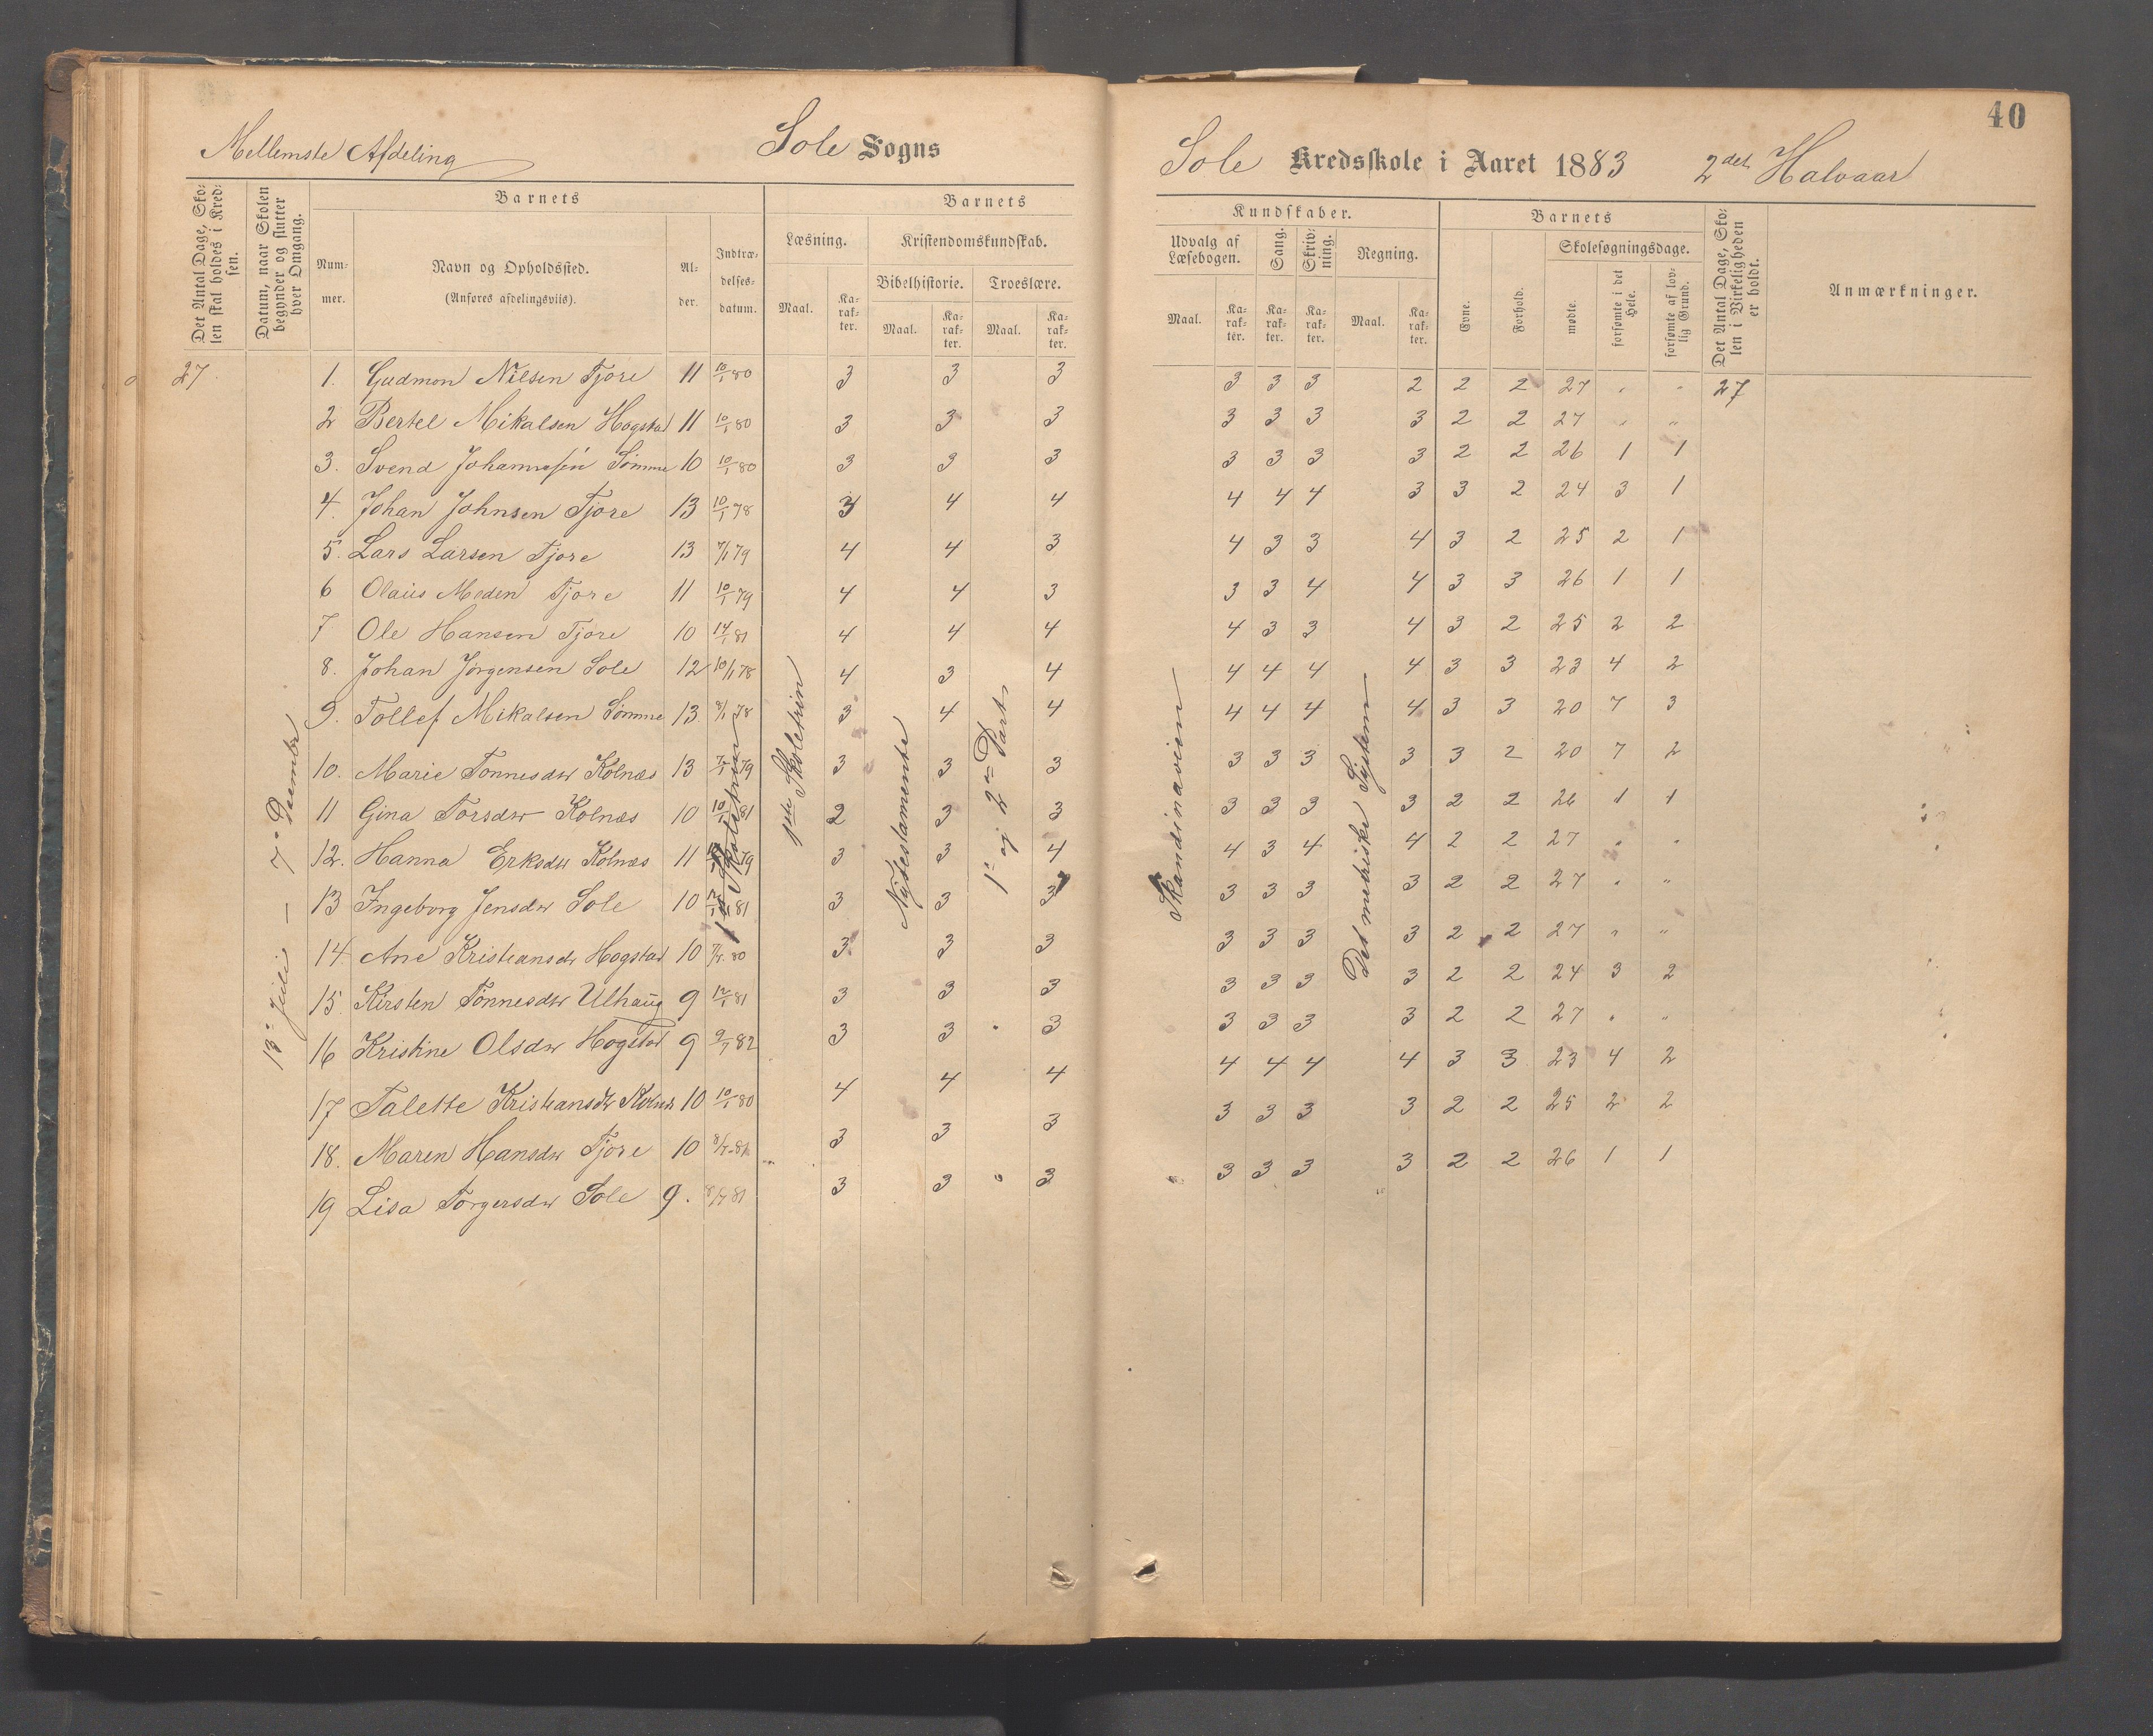 40
Mellemste Afdeling
Sole Sogns
Sole Kredsskole i Aaret 1883 2det Halvaar
Det Antal Dage, Skolen skal holdes i Kredsen.
Datum, naar Skolen begynder og slutter hver Omgang.
Barnets
Nummer.
Navn og Opholdssted.
(Anføres afdelingsviis).
Alder.
Indtrædelsesdatum.
Barnets
Læsning.
Kristendomskundskab.
Bibelhistorie. Troeslære.
Maal. Karakter. Maal. Karakter. Maal. Karakter.
Kundskaber.
Udvalg af Læsebogen. Sang. Skrivning. Regning.
Maal. Karakter. Karakter. Karakter. Maal. Karakter.
Barnets
Evne. Forhold.
Skolesøgningsdage.
mødte. forsømte i det Hele. forsømte af lovlig Grund.
Det Antal Dage, Skolen i Virkeligheden er holdt.
Anmærkninger.
27. 1. Gudmon Nilsen Tjore 11 10/1 80 3 3 3 3 3 3 2 2 2 27 " " 27
2 Bertel Mikalsen Hogstad 11 10/1 80 3 3 3 3 3 3 3 2 2 27 " "
3. Svend Johannesen Sømme 10 10/1 80 3 3 3 3 3 3 3 2 2 26 1 1
4. Johan Johnsen Tjore 13 10/1 78 3 4 4 4 4 4 3 3 2 24 3 1
5. Lars Larsen Tjore 13 7/1 79 4 4 3 4 3 3 4 3 2 25 2 1
6 Olaus Meden Tjore 11 10/1 79 4 4 3 3 3 4 4 3 3 26 1 1
7 Ole Hansen Tjore 10 14/1 81 4 4 4 4 3 3 4 3 2 25 2 2
8. Johan Jørgensen Sole 12 10/1 78 4 3 4 4 4 4 4 3 3 23 4 2
9. Tollef Mikalsen Sømme 13. 8/1 78 3 4 4 4 4 4 4 3 3 20 7 3
10. Marie Tønnesdtr Kolnæs 13 7/1 79 3 3 3 3 3 3 3 3 2 20 7 2
11 Gina Torsdtr Kolnæs 10 10/1 81 2 3 3 3 3 3 3 2 2 26 1 1
12. Hanna Eriksdtr Kolnæs 11 79 3 3 4 4 3 4 4 2 2 27 " "
13 Ingeborg Jensdtr Sole 10 81 3 3 3 3 3 3 3 2 2 27 " "
14. Ane Kristiansdtr Hogstad 10 7/7. 80 3 3 3 3 3 3 3 2 2 27 " "
15. Kirsten Tønnesdtr Ulhaug 9 12/1 81 3 3 3 3 3 3 3 2 2 24 3 2
16 Kristine Olsdtr Hogstad 9 9/7 82 3 3 " 3 3 3 3 3 2 2 27 " "
17 Talette Kristiansdtr Kolnæs 10 10/1 80 4 4 4 4 4 4 4 3 3 23 4 2
18. Maren Hansdtr Tjore 10 8/7. 81 3 3 3 3 3 3 3 2 2 25 2 2
19 Lisa Torgersdtr Sole 9. 8/7 81 3 3 " 3 3 3 3 3 2 2 26 1 1
13de Juli — 7de December
1ste Skoletrin
1ste Skoletrin
Nytestamente
1ste og 2den Part
Skandinavien
Det metriske System